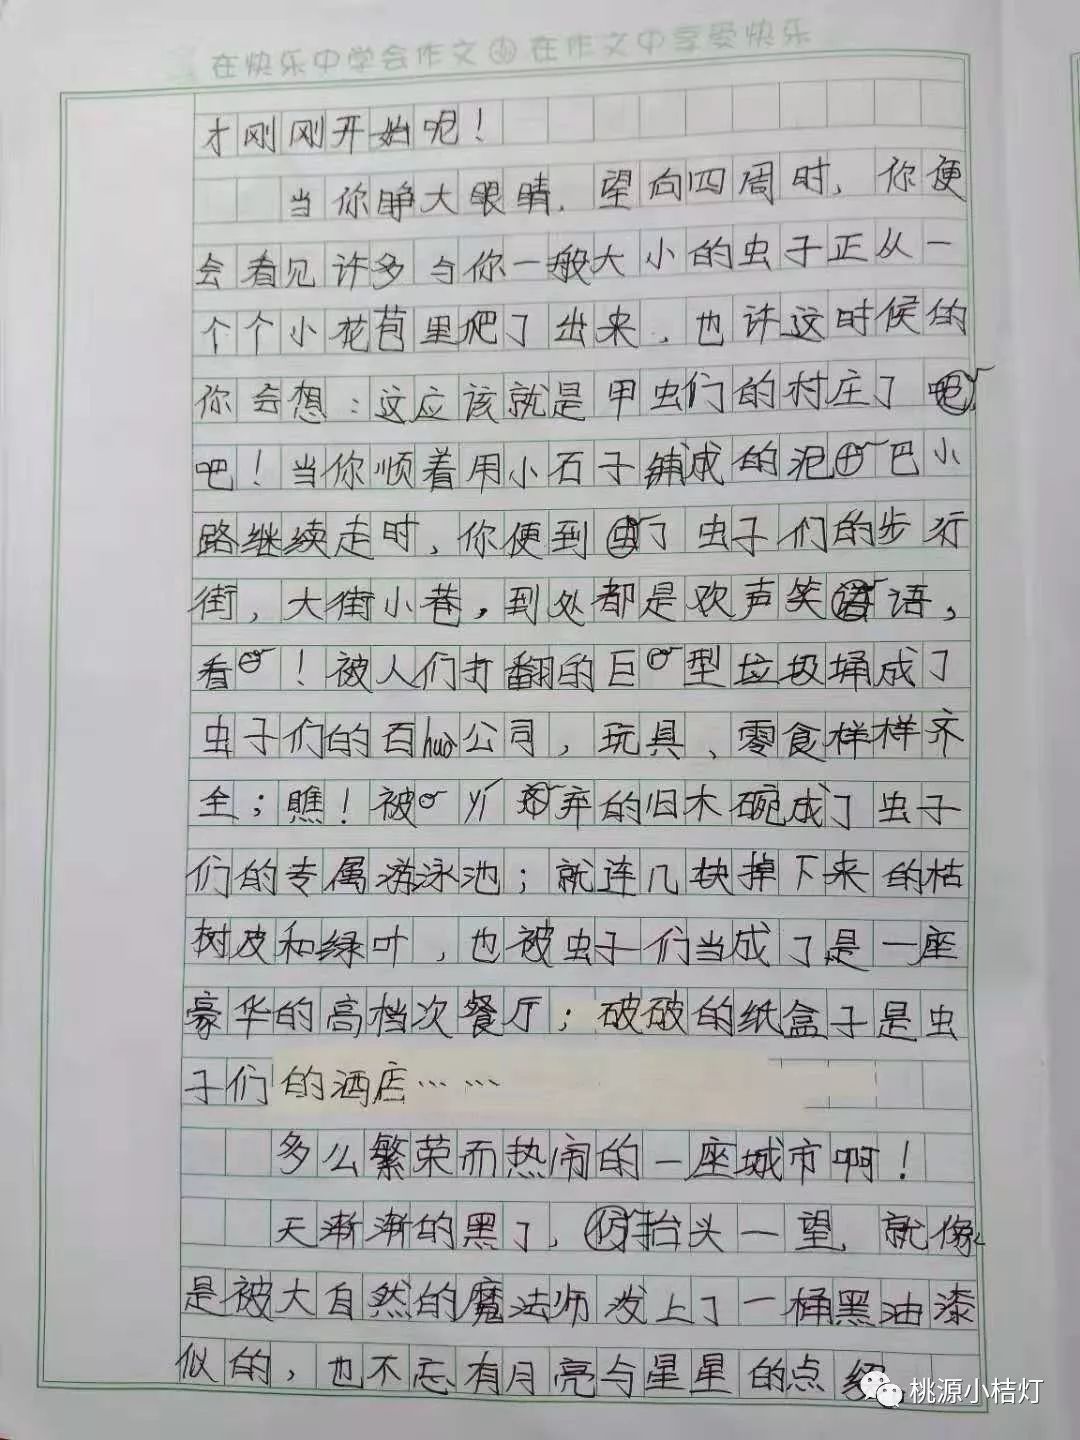 在快乐中学会作文 在作文中享受快乐
才刚刚开始呢！
当你睁大眼睛，望向四周时，你便
会看见许多与你一般大小的虫子正从一
个个小花苞里爬了出来，也许这时候的
你会想：这应该就是甲虫们的村庄了
吧！当你顺着用小石子铺成的泥巴小
路继续走时，你便到了虫子们的步行
街，大街小巷，到处都是欢声笑语，
看！被人们打翻的巨型垃圾埇成了
虫子们的百huò公司，玩具、零食样样齐
全；瞧！被丫弃的旧木碗成了虫子
们的专属游泳池；就连几块掉下来的枯
树皮和绿叶，也被虫子们当成了是一座
豪华的高档次餐厅；破破的纸盒子是虫
子们的酒店……
多么繁荣而热闹的一座城市啊！
天渐渐的黑了，抬头一望，就像
是被大自然的魔法师泼上了一桶黑油漆
似的，也不忘有月亮与星星的点缀
桃源小桔灯